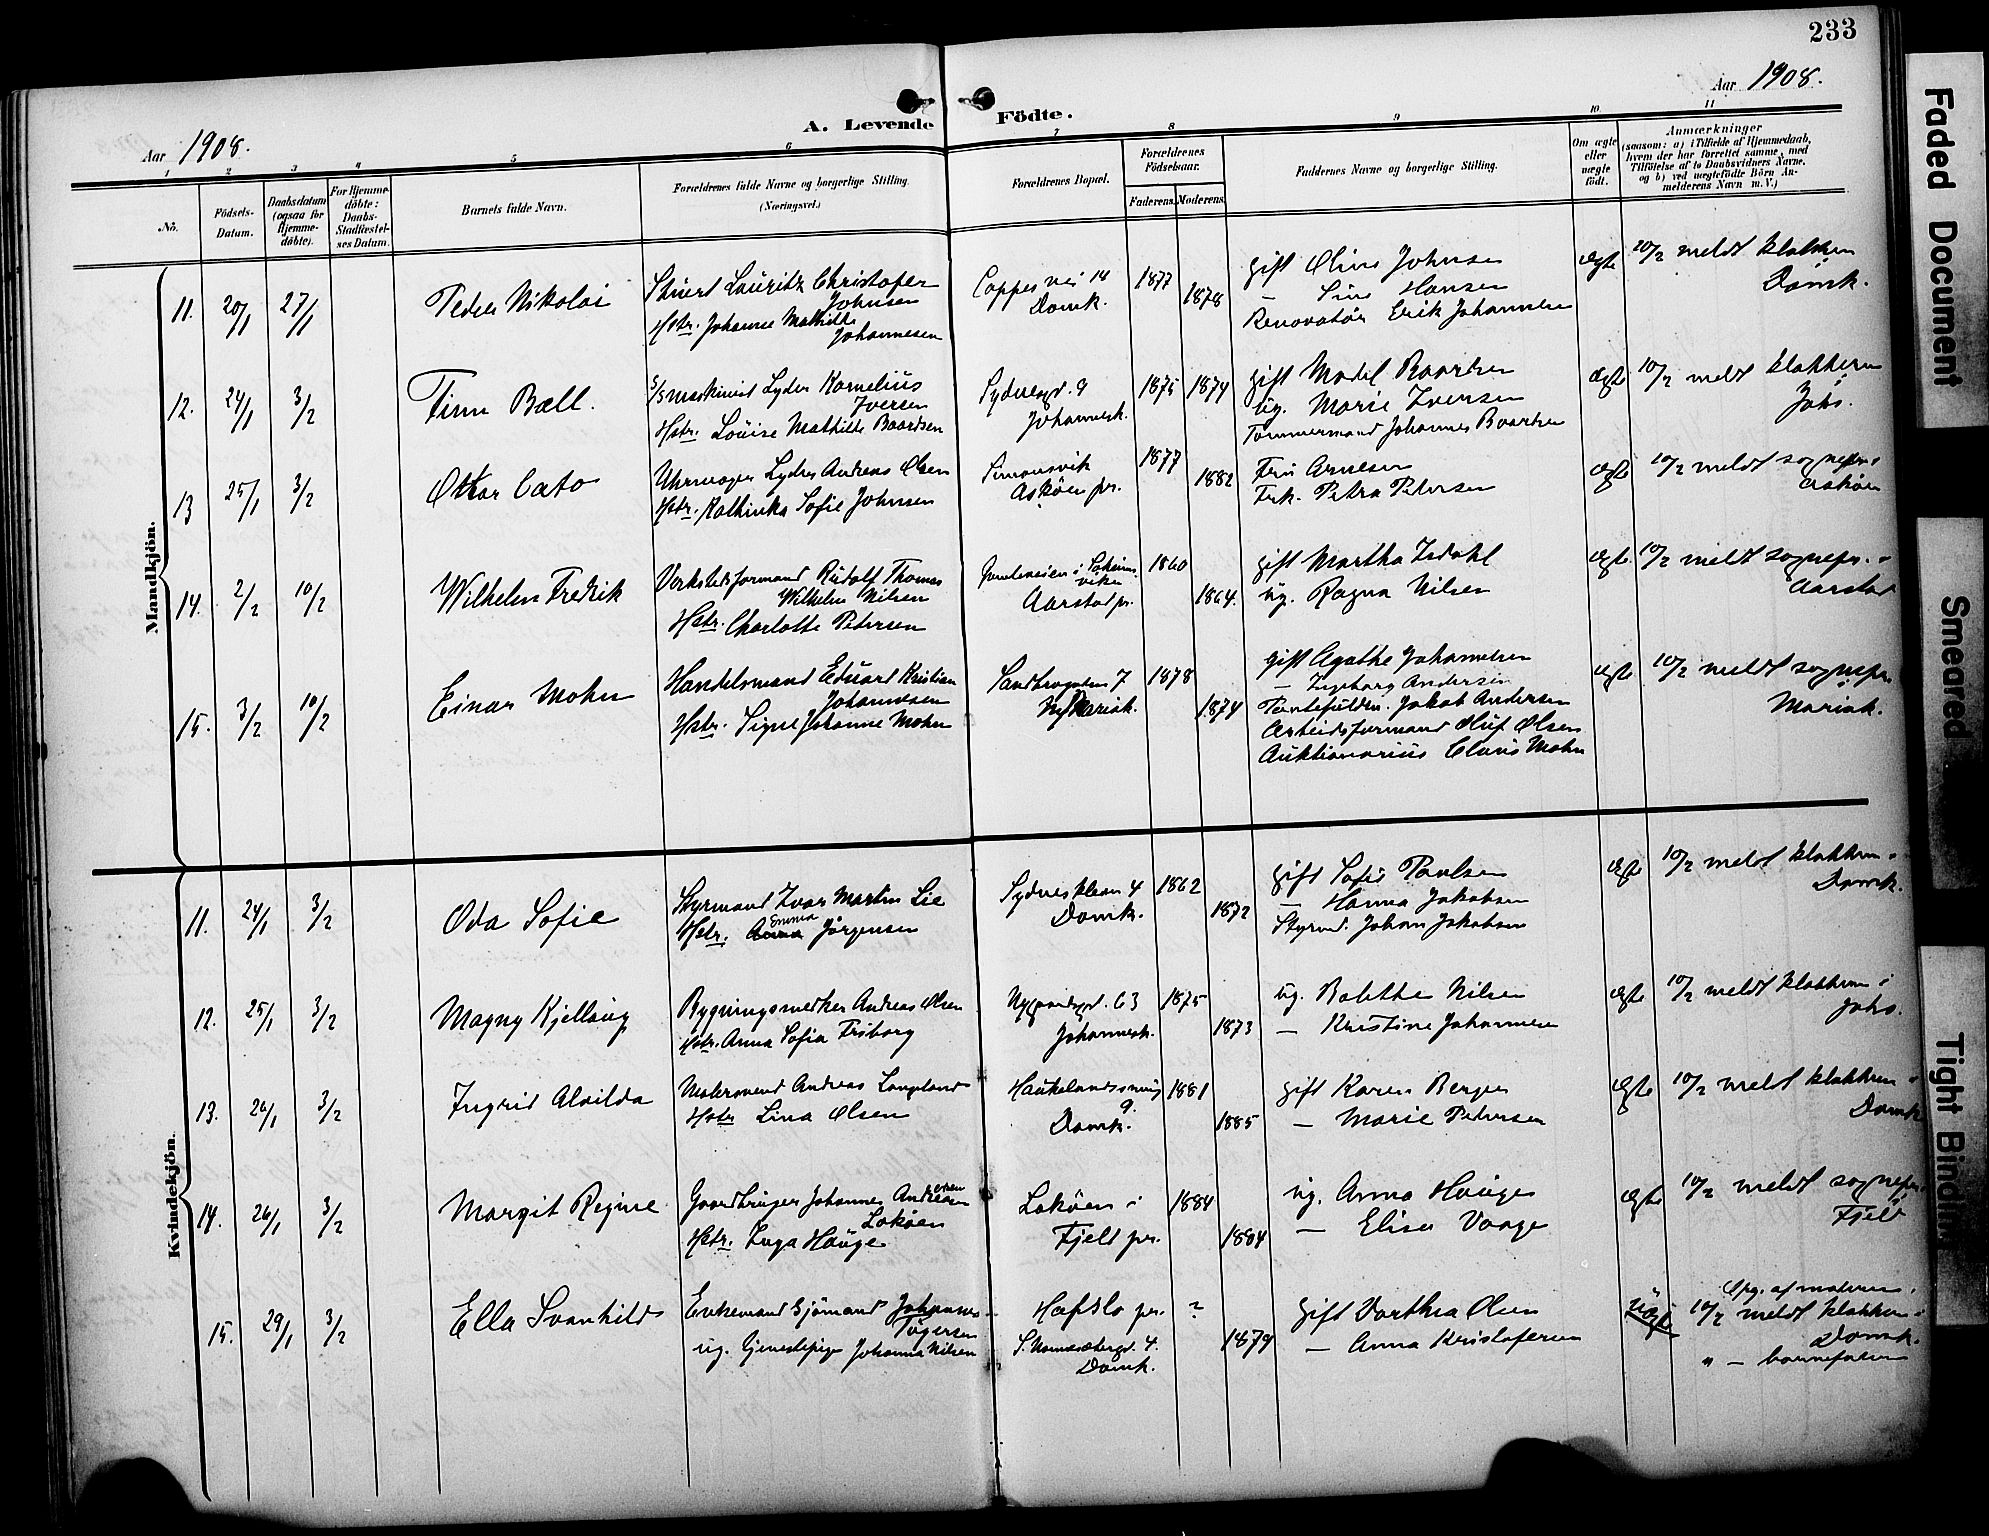 233
Aar 1908.
Aar 1908.
A. Levende Födte.
1 2 3 4 5 6 7 8 9 10 11
No.
Födsels-
Datum.
Daabsdatum
(ogsaa for
Hjemme-
döbte).
For Hjemme-
döbte:
Daabs-
Stadfæstel-
ses Datum.
Barnets fulde Navn.
Forældrenes fulde Navne og borgerlige Stilling.
(Næringsvei.)
Forældrenes Bopæl.
Forældrenes
Födselsaar.
Faderens. Moderens.
Faddernes Navne og borgerlige Stilling.
Om ægte
eller
uægte
födt.
Anmærkninger
(saasom: a) i Tilfælde af Hjemmedaab,
hvem der har forrettet samme, med
Tilföielse af to Daabsvidners Navne,
og b) ved uægtefödte Börn An-
melderens Navn m. V.)
Mandkjön.
11. 20/1 27/1 Peder Nikolai
Stuert Lauritz Christofer
Johnsen
Hstr. Johanne Mathilde
Johannesen
Coppes vei 14
Domk.
1877 1878
gift Oline Johnsen
— Sine Hansen
Renovatør Erik Johannesen
ægte
20/2 meldt klokkeren
Domk.
12. 24/1 3/2 Finn Ball.
S/Smaskinist Lyder Kornelius
Iversen
Hstr. Louise Mathilde Baardsen
Sydnesgd. 9
Johannesk.
1875 1874
gift Madel Baardsen
ug. Marie Iversen
Tømmermand Johannes Baardsen
ægte
10/2 meldt klokkeren
Johs.
13 25/1 3/2 Ottar Cato
Uhrmager Lyder Andreas Olsen
Hstr. Kathinka Sofie Johnsen
Simonsvik
Askøen pr.
1877 1882
Fru Arnesen
Frk. Petra Petersen
ægte
10/2 meldt sognepr. i
Askøen
14. 2/2 10/2 Wilhelm Fredrik
Verkstedsformand Rudolf Thomas
Wilhelm Nilsen
Hstr. Charlotte Petersen
viken
Aarstad pr.
1860 1864.
gift Martha Isdahl
ug. Ragna Nilsen
ægte
10/2 meldt sognepr. i
Aarstad
15. 3/2 10/2 Einar Mohn
Handelsmand Eduard Kristian
Johannesen
Hstr. Signe Johanne Mohn
Sandbrogaten 7
Mariak.
1878 1874
gift Agathe Johannesen
— Ingeborg Andersen
Jakob Andersen
Arbeidsformand Oluf Olsen
Auktionarius Claus Mohn
ægte
10/2 meldt sognepr.
Mariak.
Kvindekjön.
11. 24/1 3/2 Oda Sofie
Styrmand Ivar Martin Lie
Hstr. Emma Jørgensen
Sydnesplean 4
Domk.
1862 1872
gift Sofie Paulsen
— Hanna Jakobsen
Styrmd. Johan Jakobsen
ægte
10/2 meldt klokkeren i
Domk.
12. 25/1 3/2 Magny Kjellaug
Bygningssnedker Andreas Olsen
Hstr. Anna Sofia Friborg
Nygaardsgd. 63
Johannesk.
1875 1873
ug. Bolette Nilsen
— Kristine Johannesen
ægte
10/2 meldt klokkeren i
Johs.
13. 26/1 3/2 Ingrid Alvilda
Malersvend Andreas Langeland
Hstr Lina Olsen
Haukelandssmug
9.
Domk.
1881 1885
gift Karen Berger
— Marie Petersen
ægte
10/2 meldt klokkeren i
Domk
14. 26/1 3/2 Margit Regine
Gaardbruger Johannes Andersen
Lokøen
Hstr. Inga Hauge
Lokøen i
Fjeld pr.
1884 1884
ug. Anna Hauge
— Elisa Vaage
ægte
10/2 meldt sognepr. i
Fjeld
15. 29/1 3/2 Ella Svanhild
Enkemand Sjømand Johannes
ug. tjenestepige Johanna Nilsen
Hafslo pr.
S. Domk.
? 1879
gift Dorthea Olsen
— Anna Kristofersen
uægte
Opg. af moderen.
10/2 meldt klokkeren i
Domk.
" — barnefaderen
Faded Document
Smeared
Tight Binding